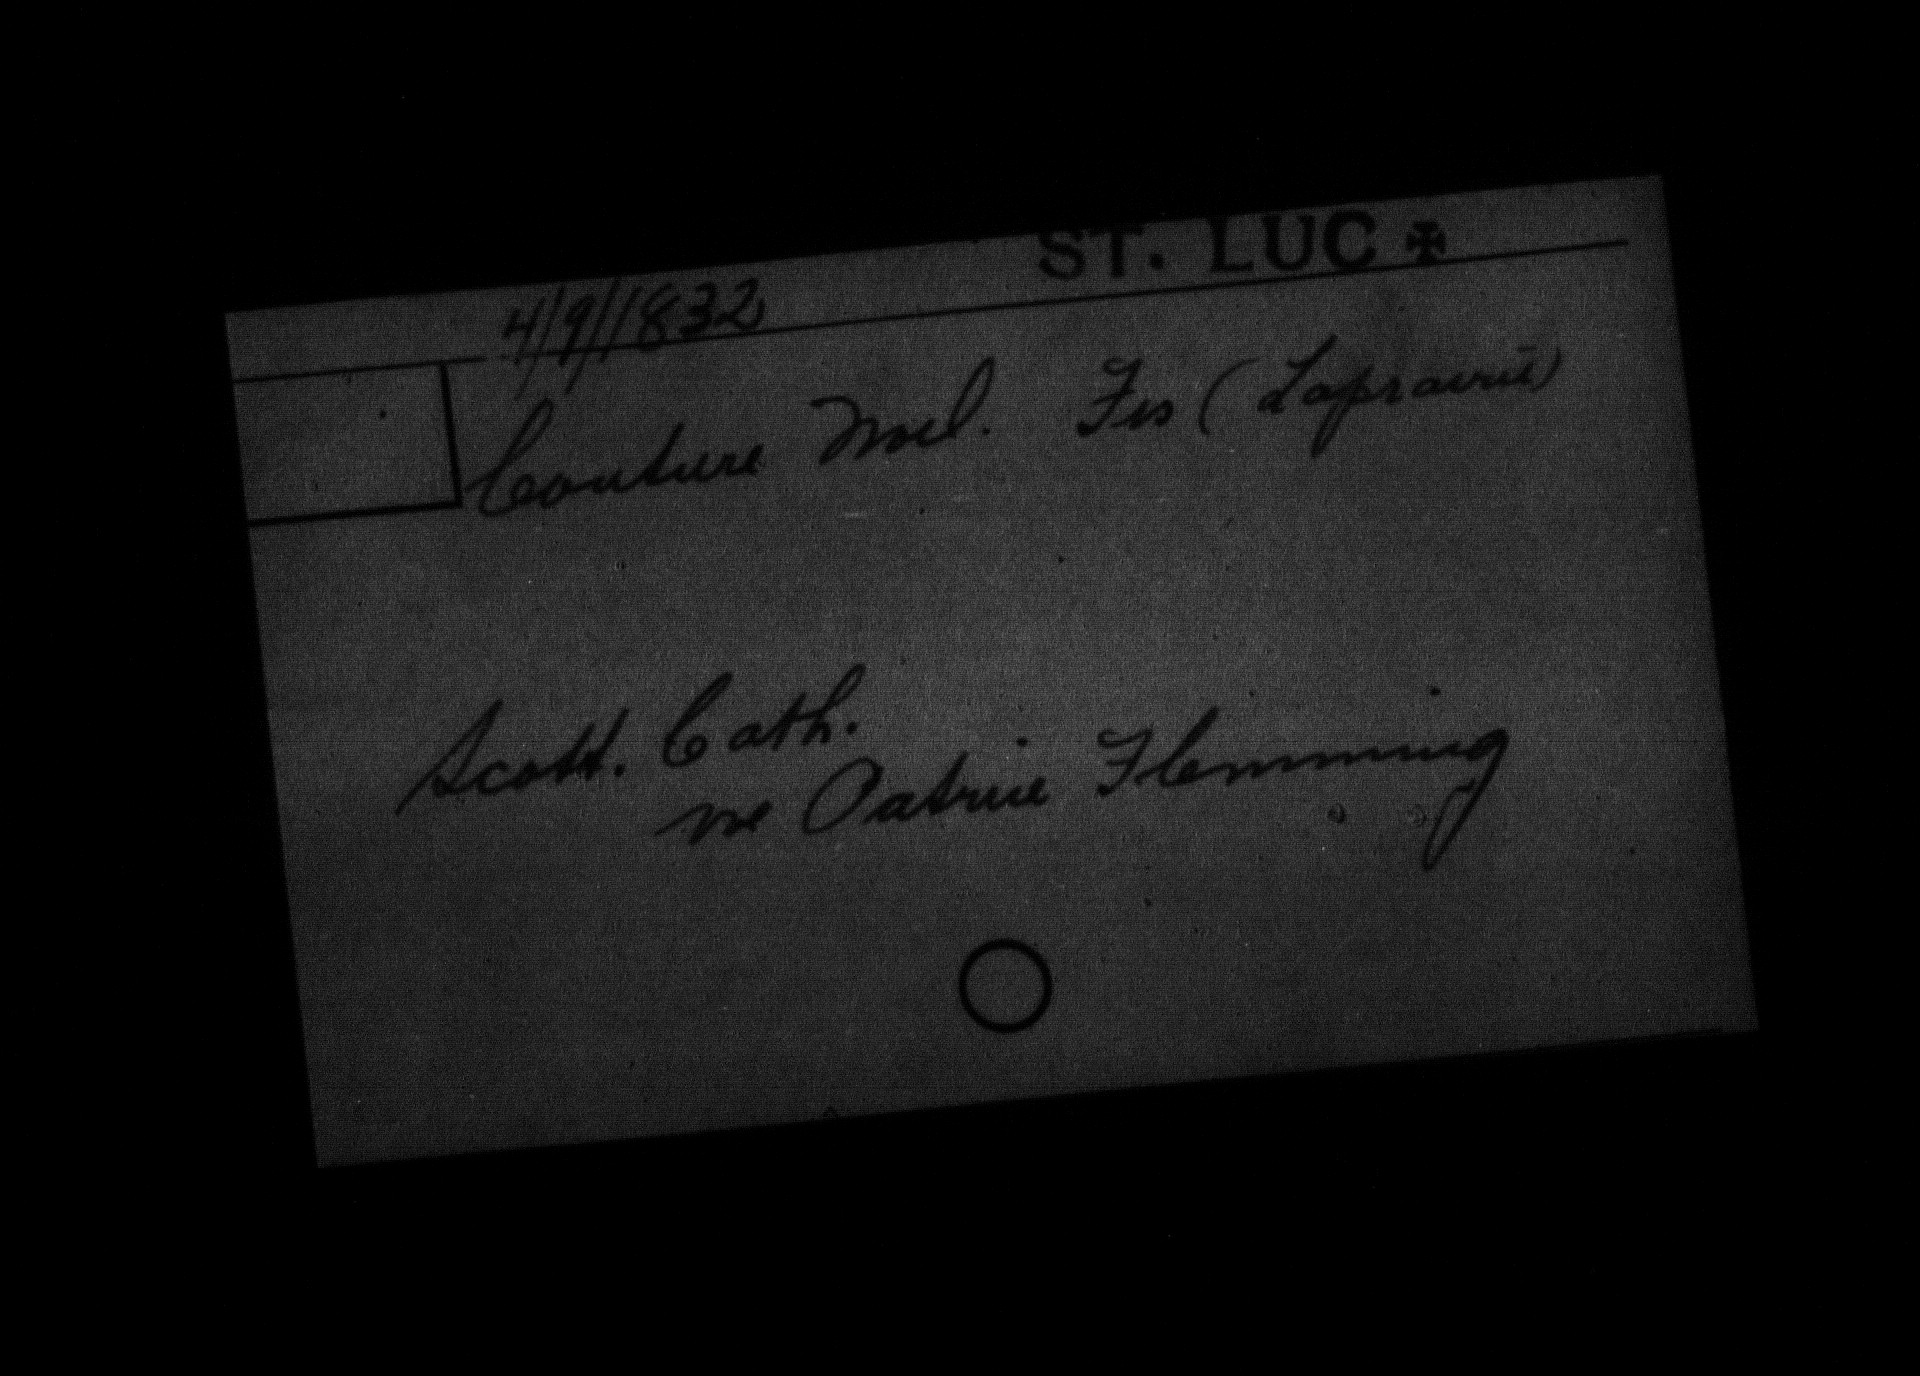 ST. LUC ✠
4/9/1832
Couture Noel. Frs (Laprairie)
Scott. Cath.
ve Patrice Flemming